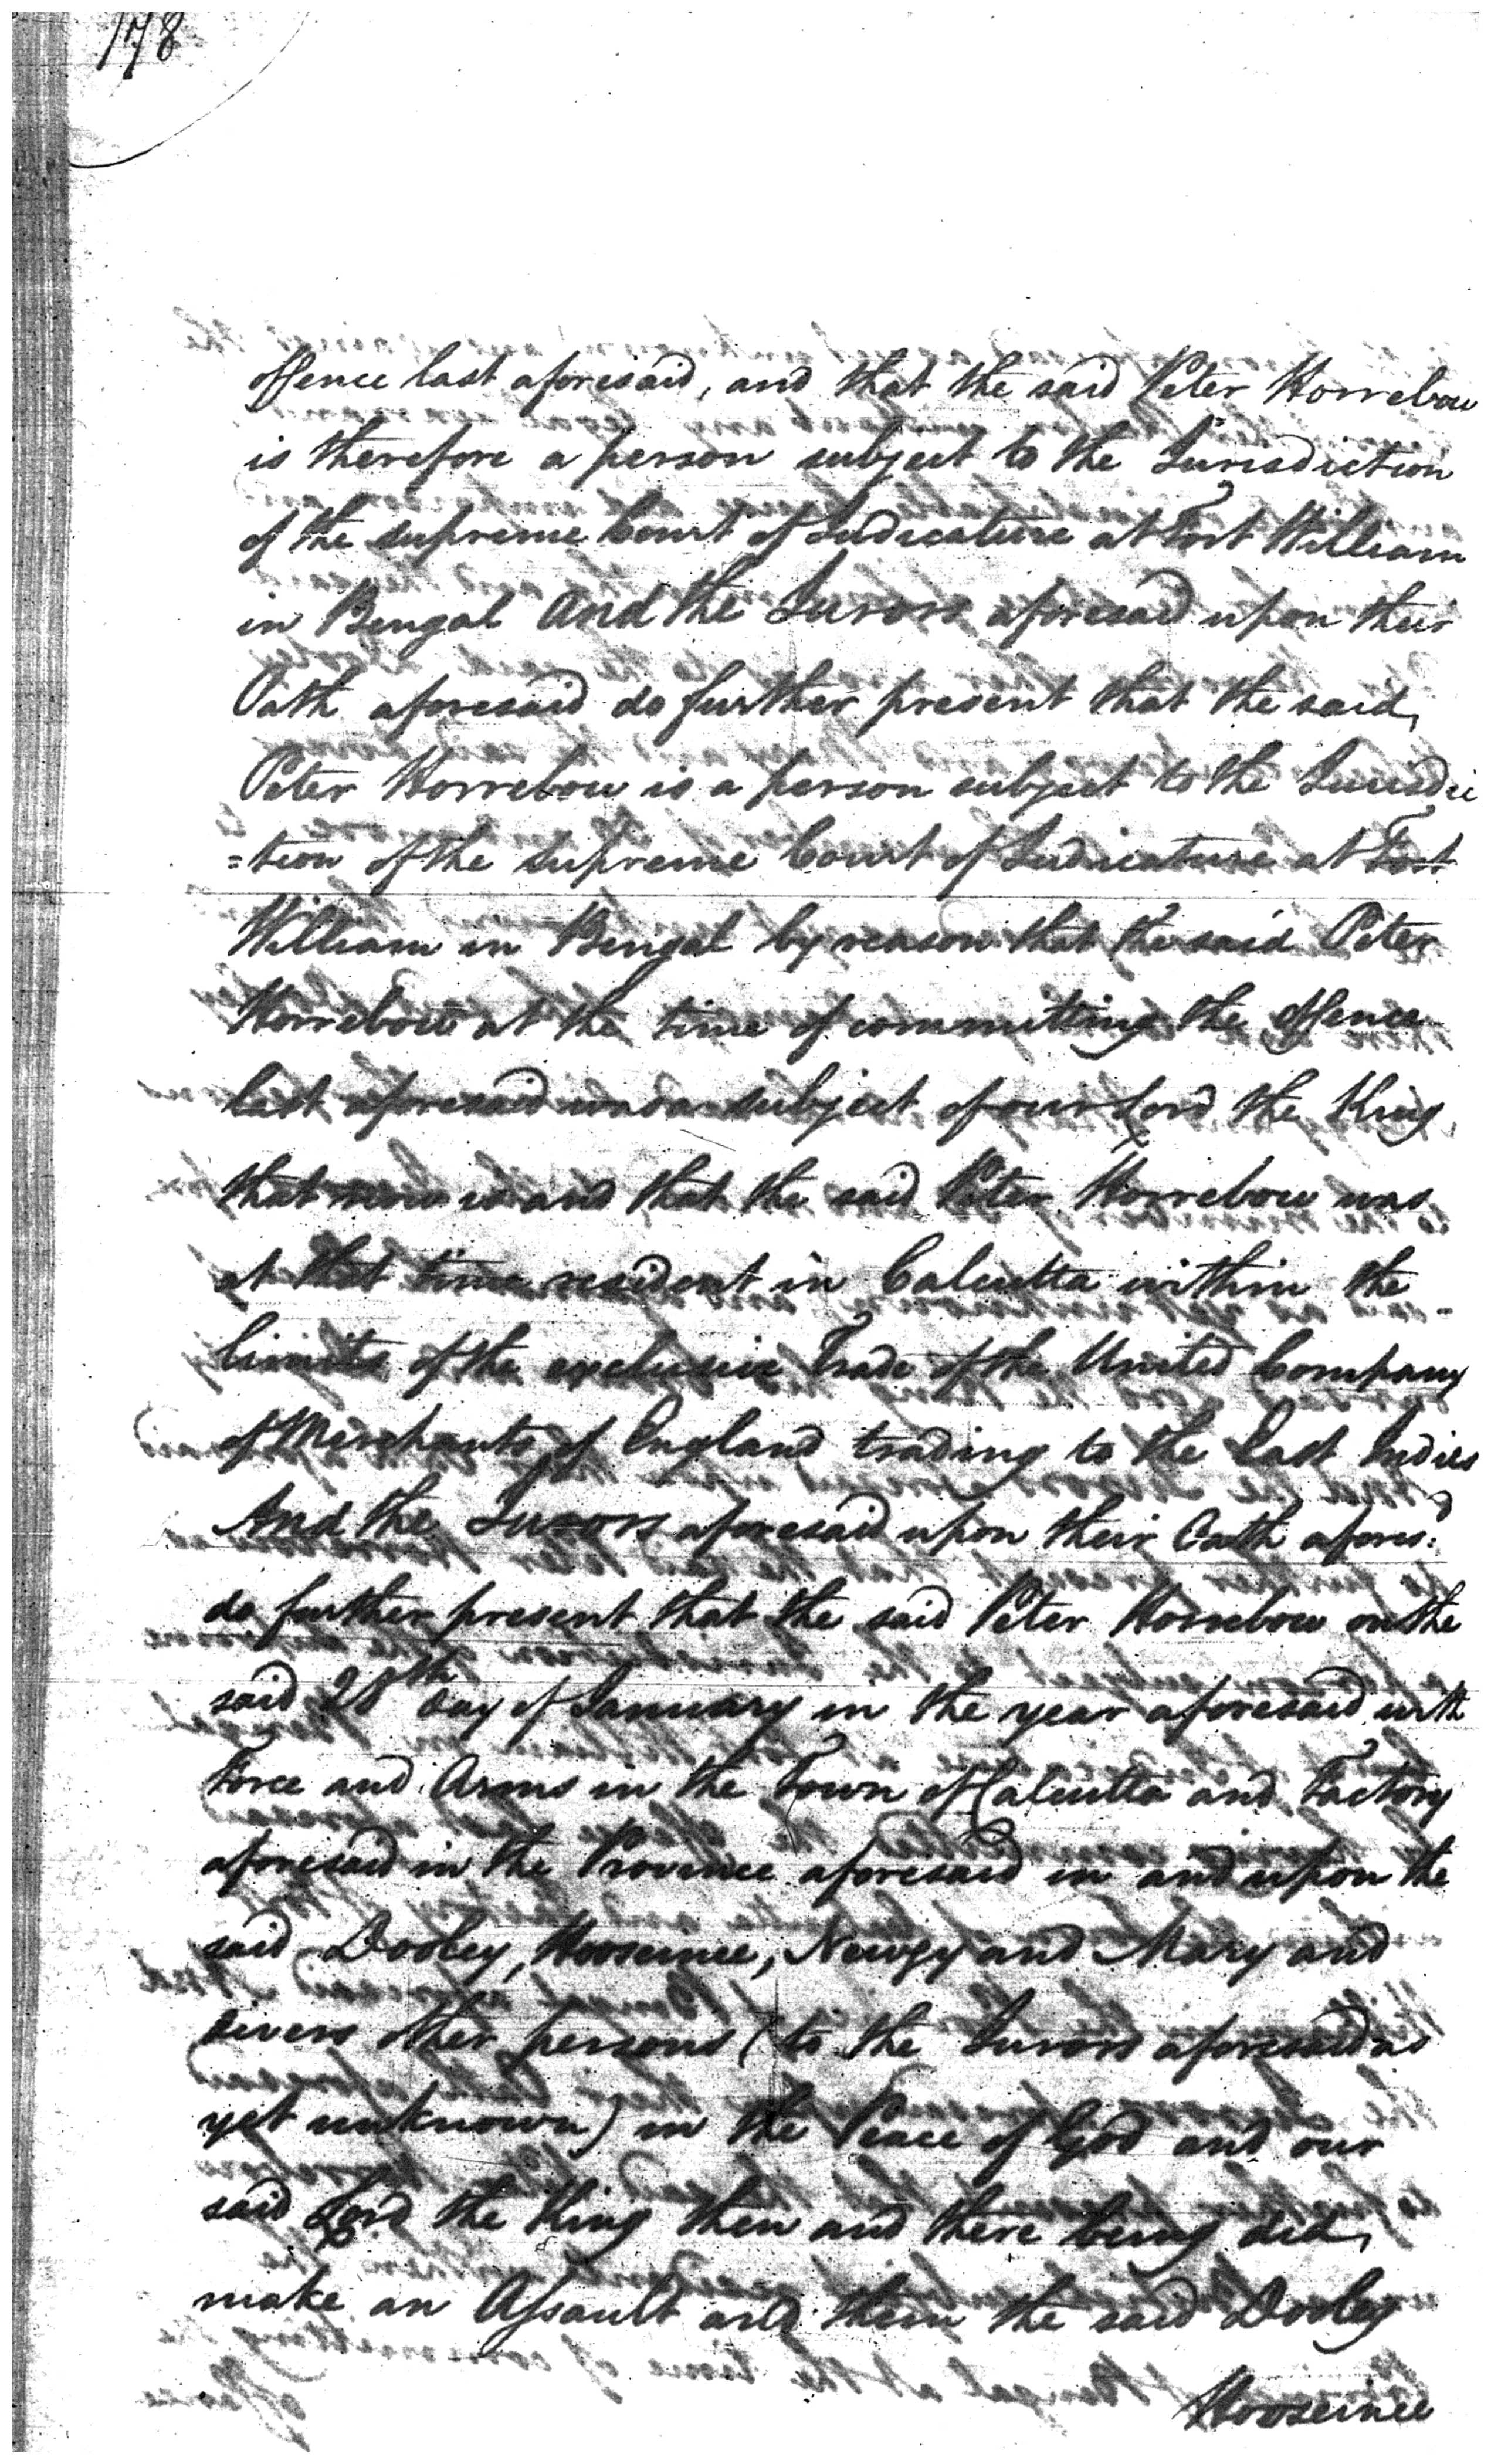 178
offence last aforesaid, and that the said Peter Horrebow
is therefore a person subject to the Jurisdiction
of the supreme Court of Judicature at Fort William
in Bengal And the Jurors aforesaid upon their
Oath aforesaid do further present that the said
Peter Horrebow is a person subject to the Jurisdic
=tion of the supreme Court of Judicature at Fort
William in Bengal by reason that the said Peter
Horrebow at the time of committing the offence
last aforesaid was a subject of our Lord the King
that now is and that the said Peter Horrebow was
at that time resident in Calcutta within the
limits of the exclusive Trade of the United Company
of Merchants of England trading to the East Indies
And the Jurors aforesaid upon their Oath afores.d
do further present that the said Peter Horrebow on the
said 28th day of January in the year aforesaid with
Force and Arms in the Town of Calcutta and Factory
aforesaid in the Province aforesaid in and upon the
said Dooley, Hooseinee, Newgy and Mary and
divers other persons (to the Jurors aforesaid as
yet unknown) in the Peace of God and our
said Lord the King then and there being did
make an Assault and them the said Dooley
Hooseinee